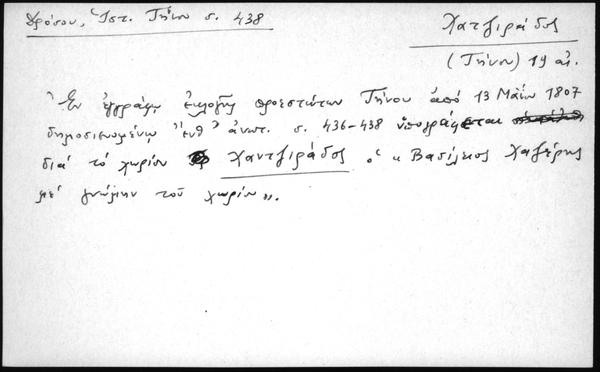 Δρόσου, Ἱστ. Τήνου σ. 438
Χατζιράδος
(Τήνου) 19 αἰ.
Ἐν ἐγγράφῳ ἐκλογῆς προεστώτων Τήνου ἀπό 13 Μαΐου 1807
δημοσιευομένῳ ἔνθ' ἀνωτ. σ. 436-438 ὑπογράφεται
διά τό χωρίον Χαντζιράδος ὁ "Βασίλειος
μέ γνώμην τοῦ χωρίου".